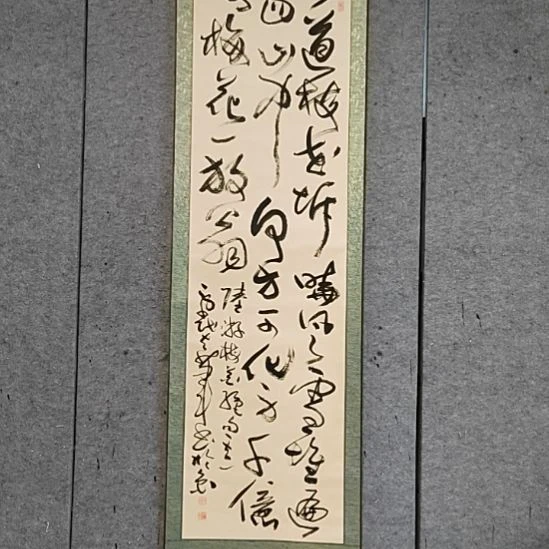 道梅花坼曉風雪堆遍
四山中何方可化身千億
梅花一放翁
陸游梅花絶句之一